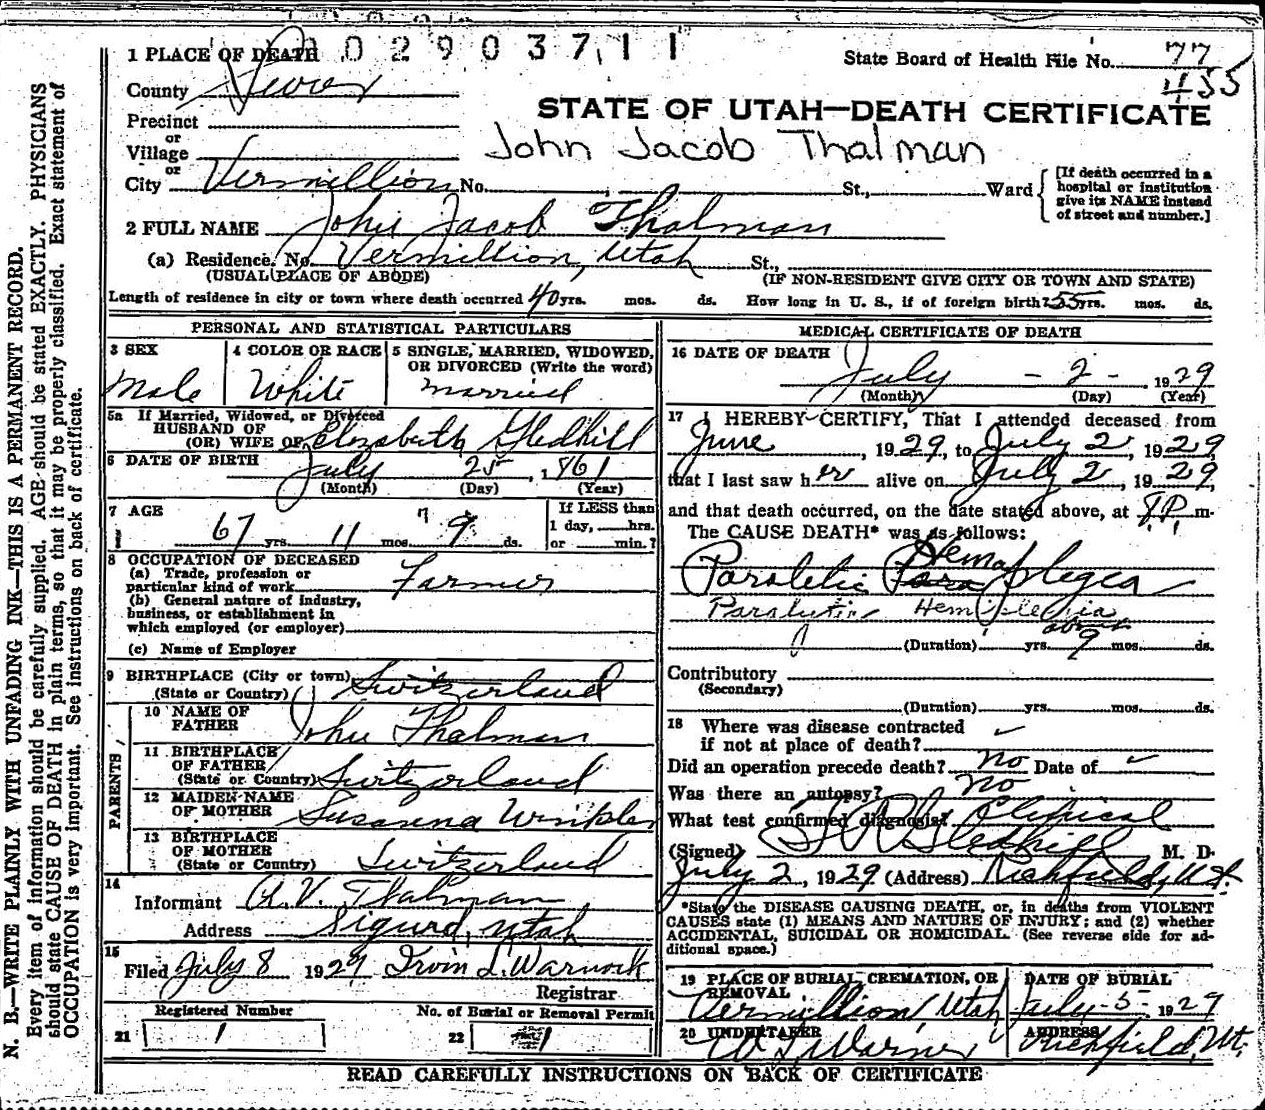 0 0 2 9 0 3 7 1 1
1 PLACE OF DEATH
State Board of Health File No. 77
455
County Sevier
STATE OF UTAH—DEATH CERTIFICATE
Precinct
or
Village
John Jacob Thalman
or
City Vermillion No. St., Ward
[If death occurred in a hospital or institution give its NAME instead of street and number.]
2 FULL NAME John Jacob Thalman
(a) Residence. No. Vermillion, Utah St.,
(USUAL PLACE OF ABODE) (IF NON-RESIDENT GIVE CITY OR TOWN AND STATE)
Length of residence in city or town where death occurred 40 yrs. mos. ds. How long in U. S., if of foreign birth? 55 yrs. mos. ds.
PERSONAL AND STATISTICAL PARTICULARS
3 SEX
Male
4 COLOR OR RACE
White
5 SINGLE, MARRIED, WIDOWED, OR DIVORCED (Write the word)
married
5a If Married, Widowed, or Divorced
HUSBAND OF
(OR) WIFE OF Elizabeth Gledhill
6 DATE OF BIRTH July 25, 1861
(Month) (Day) (Year)
7 AGE
67 yrs. 11 mos. 7 9 ds.
If LESS than
1 day, hrs.
or min.?
8 OCCUPATION OF DECEASED
(a) Trade, profession or
particular kind of work Farmer
(b) General nature of industry,
business, or establishment in
which employed (or employer)
(c) Name of Employer
9 BIRTHPLACE (City or town)
(State or Country) Switzerland
PARENTS
10 NAME OF
FATHER John Thalman
11 BIRTHPLACE
OF FATHER
(State or Country) Switzerland
12 MAIDEN NAME
OF MOTHER Susanna Winkler
13 BIRTHPLACE
OF MOTHER
(State or Country) Switzerland
14
Informant A. V. Thalman
Address Sigurd, Utah
15
Filed July 8 1929 Irvin L. Warnock
Registrar
Registered Number No. of Burial or Removal Permit
21 1 22 1
MEDICAL CERTIFICATE OF DEATH
16 DATE OF DEATH
July - 2 - , 1929
(Month) (Day) (Year)
17 I HEREBY CERTIFY, That I attended deceased from
June , 1929, to July 2 , 1929
that I last saw h er alive on July 2 , 1929,
and that death occurred, on the date stated above, at 8 P. m.
The CAUSE DEATH* was as follows:
Hema
Paraletic Para plegea
Paralytic Hemiplegia
about
(Duration) yrs. 9 mos. ds.
Contributory
(Secondary)
(Duration) yrs. mos. ds.
18 Where was disease contracted
if not at place of death?
Did an operation precede death? No Date of
Was there an autopsy? No
What test confirmed diagnosis? Clinical
(Signed) Gledhill M. D.
July 2 , 1929 (Address) Richfield, Ut.
*State the DISEASE CAUSING DEATH, or, in deaths from VIOLENT
CAUSES state (1) MEANS AND NATURE OF INJURY; and (2) whether
ACCIDENTAL, SUICIDAL OR HOMICIDAL. (See reverse side for ad-
ditional space.)
19 PLACE OF BURIAL, CREMATION, OR REMOVAL
Vermillion, Utah
DATE OF BURIAL
July - 5 - 1929
20 UNDERTAKER
W L Warner
ADDRESS
Richfield, Ut.
READ CAREFULLY INSTRUCTIONS ON BACK OF CERTIFICATE
N. B.—WRITE PLAINLY WITH UNFADING INK—THIS IS A PERMANENT RECORD.
Every item of information should be carefully supplied. AGE should be stated EXACTLY. PHYSICIANS
should state CAUSE OF DEATH in plain terms, so that it may be properly classified. Exact statement of
OCCUPATION is very important. See instructions on back of certificate.